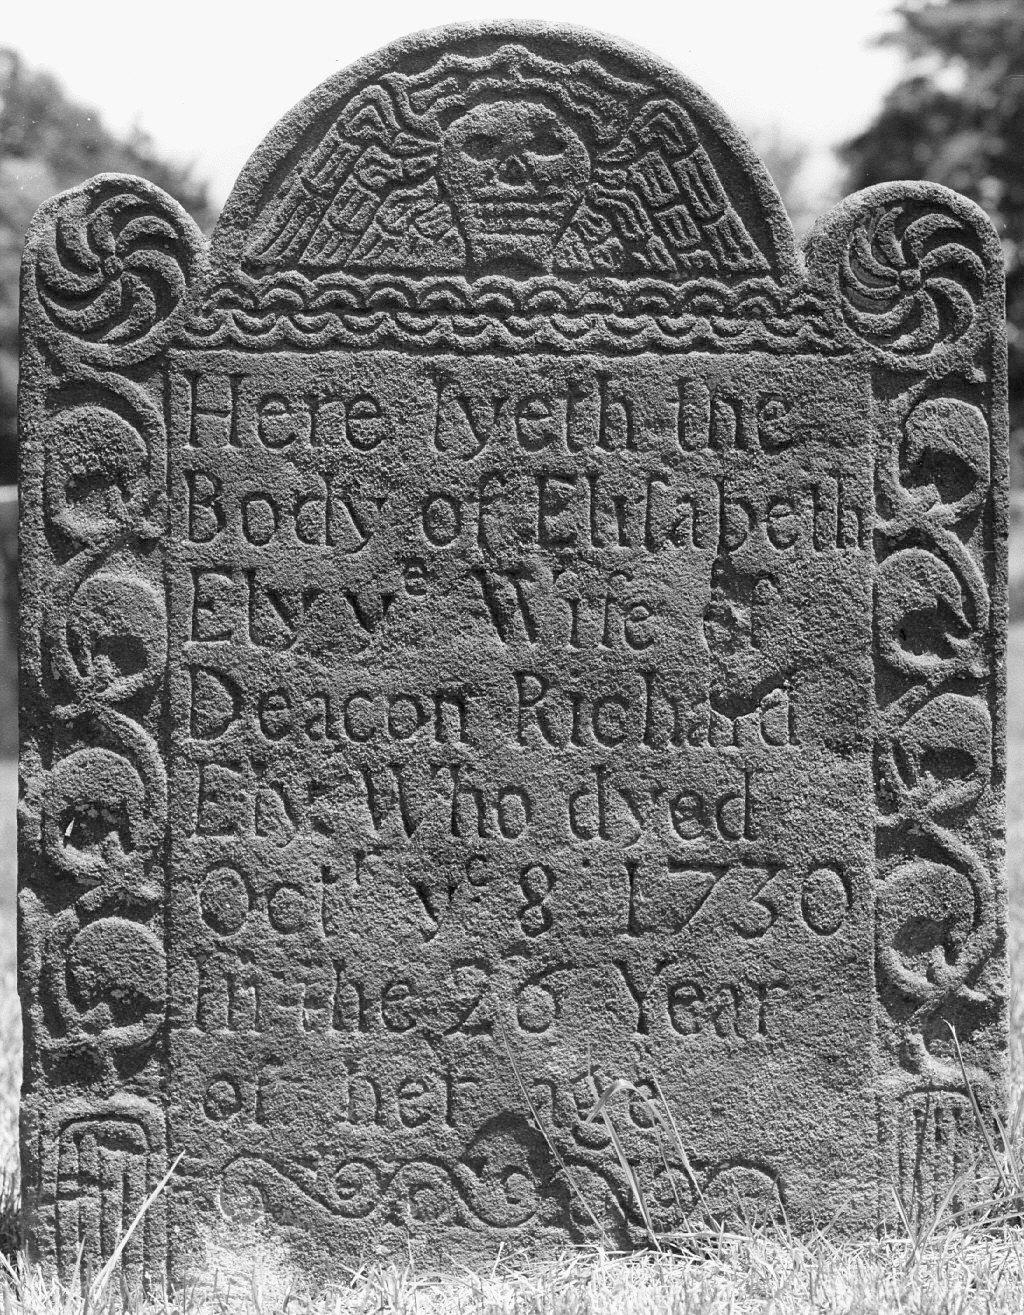 Here lyeth the
Body of Elisabeth
Ely yᵉ Wife of
Deacon Richard
Ely Who dyed
Octʳ yᵉ 8 1730
In the 26 Year
of her age